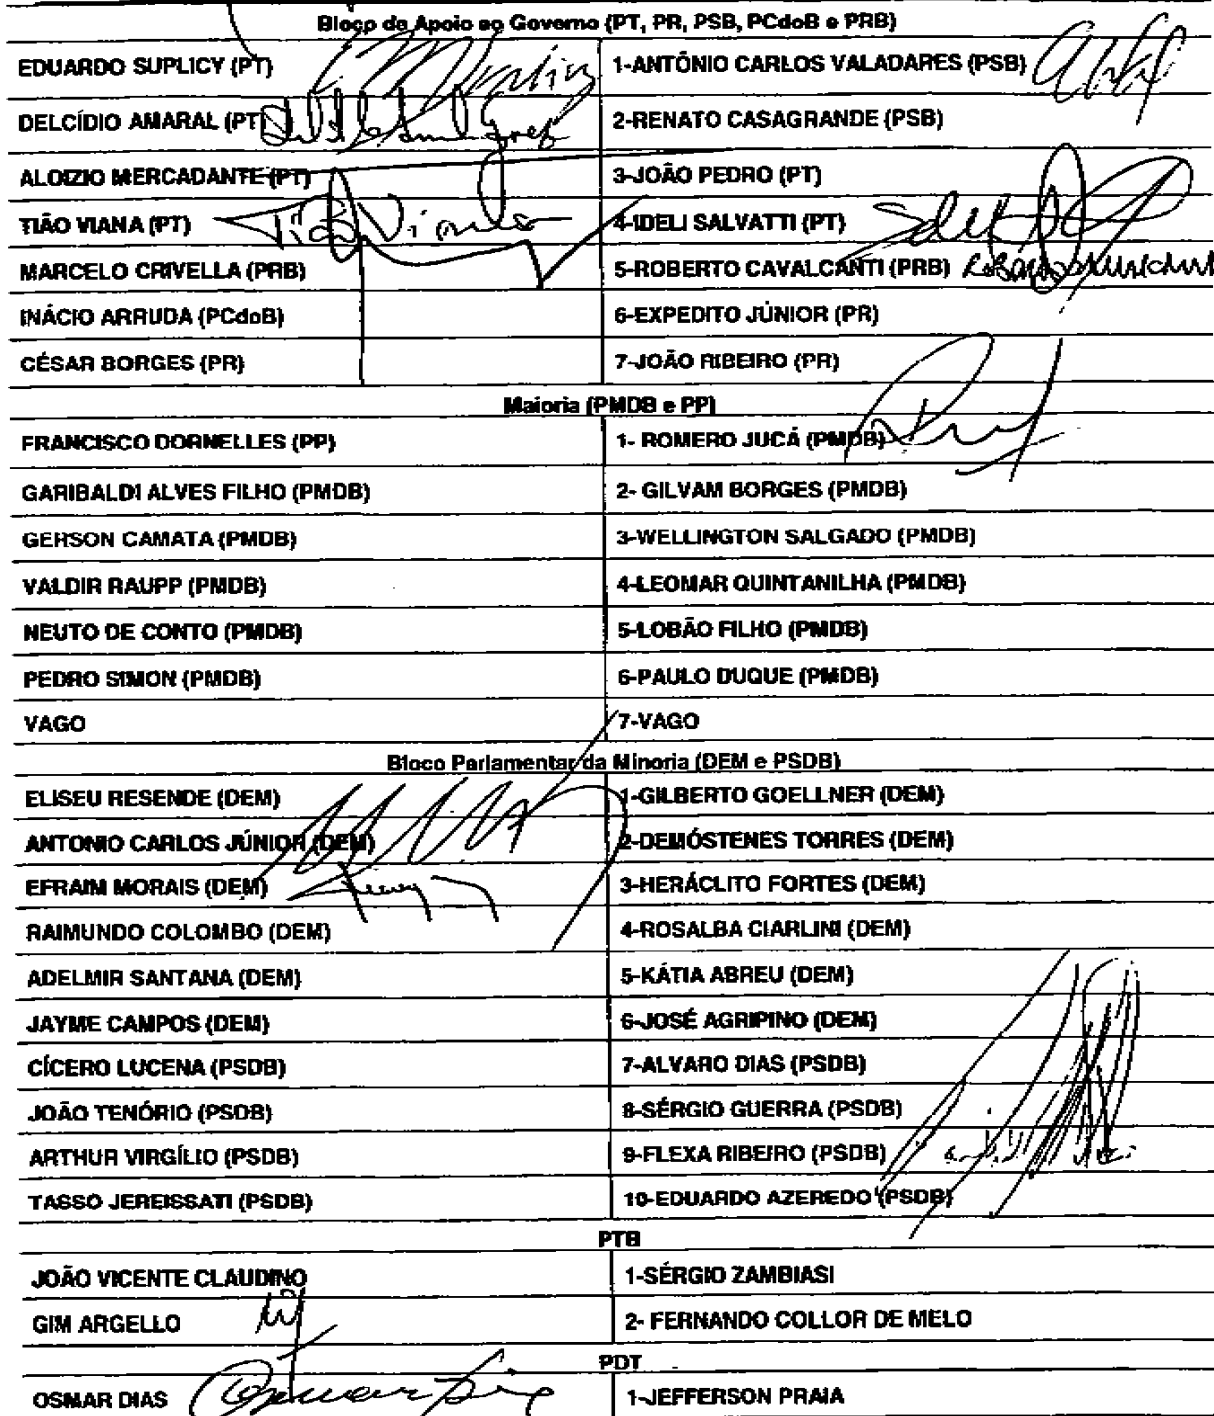 Bloco de Apoio ao Governo (PT, PR, PSB, PCdoB e PRB)
EDUARDO SUPLICY (PT) 1-ANTÔNIO CARLOS VALADARES (PSB)
DELCÍDIO AMARAL (PT) 2-RENATO CASAGRANDE (PSB)
ALOIZIO MERCADANTE (PT) 3-JOÃO PEDRO (PT)
TIÃO VIANA (PT) Tião Viana 4-IDELI SALVATTI (PT)
MARCELO CRIVELLA (PRB) 5-ROBERTO CAVALCANTI (PRB) Roberto Cavalcanti
INÁCIO ARRUDA (PCdoB) 6-EXPEDITO JÚNIOR (PR)
CÉSAR BORGES (PR) 7-JOÃO RIBEIRO (PR)
Maioria (PMDB e PP)
FRANCISCO DORNELLES (PP) 1- ROMERO JUCÁ (PMDB)
GARIBALDI ALVES FILHO (PMDB) 2- GILVAM BORGES (PMDB)
GERSON CAMATA (PMDB) 3-WELLINGTON SALGADO (PMDB)
VALDIR RAUPP (PMDB) 4-LEOMAR QUINTANILHA (PMDB)
NEUTO DE CONTO (PMDB) 5-LOBÃO FILHO (PMDB)
PEDRO SIMON (PMDB) 6-PAULO DUQUE (PMDB)
VAGO 7-VAGO
Bloco Parlamentar da Minoria (DEM e PSDB)
ELISEU RESENDE (DEM) 1-GILBERTO GOELLNER (DEM)
ANTONIO CARLOS JÚNIOR (DEM) 2-DEMÓSTENES TORRES (DEM)
EFRAIM MORAIS (DEM) 3-HERÁCLITO FORTES (DEM)
RAIMUNDO COLOMBO (DEM) 4-ROSALBA CIARLINI (DEM)
ADELMIR SANTANA (DEM) 5-KÁTIA ABREU (DEM)
JAYME CAMPOS (DEM) 6-JOSÉ AGRIPINO (DEM)
CÍCERO LUCENA (PSDB) 7-ALVARO DIAS (PSDB)
JOÃO TENÓRIO (PSDB) 8-SÉRGIO GUERRA (PSDB)
ARTHUR VIRGÍLIO (PSDB) 9-FLEXA RIBEIRO (PSDB)
TASSO JEREISSATI (PSDB) 10-EDUARDO AZEREDO (PSDB)
PTB
JOÃO VICENTE CLAUDINO 1-SÉRGIO ZAMBIASI
GIM ARGELLO 2- FERNANDO COLLOR DE MELO
PDT
OSMAR DIAS Osmar Dias 1-JEFFERSON PRAIA